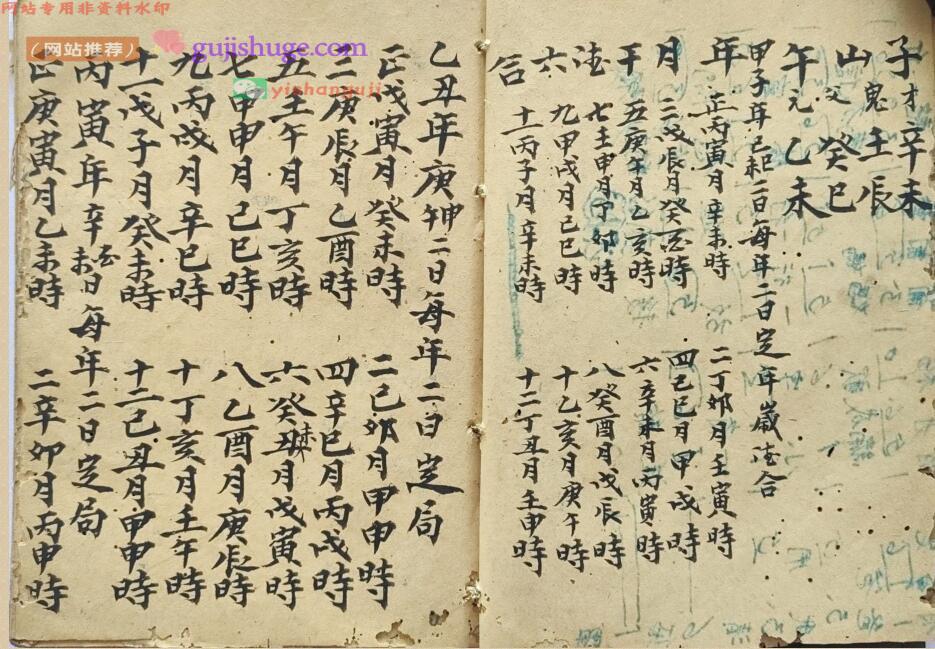 网站专用非资料水印
（网站推荐）
gujishuge.com
yishanguji
子才辛未
山鬼壬辰
父癸巳
午元乙未
甲子年己未己巳二日每年二日定年歲德合
年 正丙寅月辛未時 二丁卯月壬寅時
月 三戊辰月癸時 四己巳月甲戌時
干 五庚午月乙亥時 六辛未月丙寅時
德 七壬申月丁卯時 八癸酉月戊辰時
六 九甲戌月己巳時 十乙亥月庚午時
合 十一丙子月辛未時 十二丁丑月壬申時
乙丑年庚午申二日每年二日定局
正戊寅月癸未時 二己卯月甲申時
三庚辰月乙酉時 四辛巳月丙戌時
五壬午月丁亥時 六癸未月戊寅時
七甲申月己巳時 八乙酉月庚辰時
九丙戌月辛巳時 十丁亥月壬午時
十一戊子月癸未時 十二己丑月甲申時
丙寅年辛未日每年二日定局
正庚寅月乙未時 二辛卯月丙申時